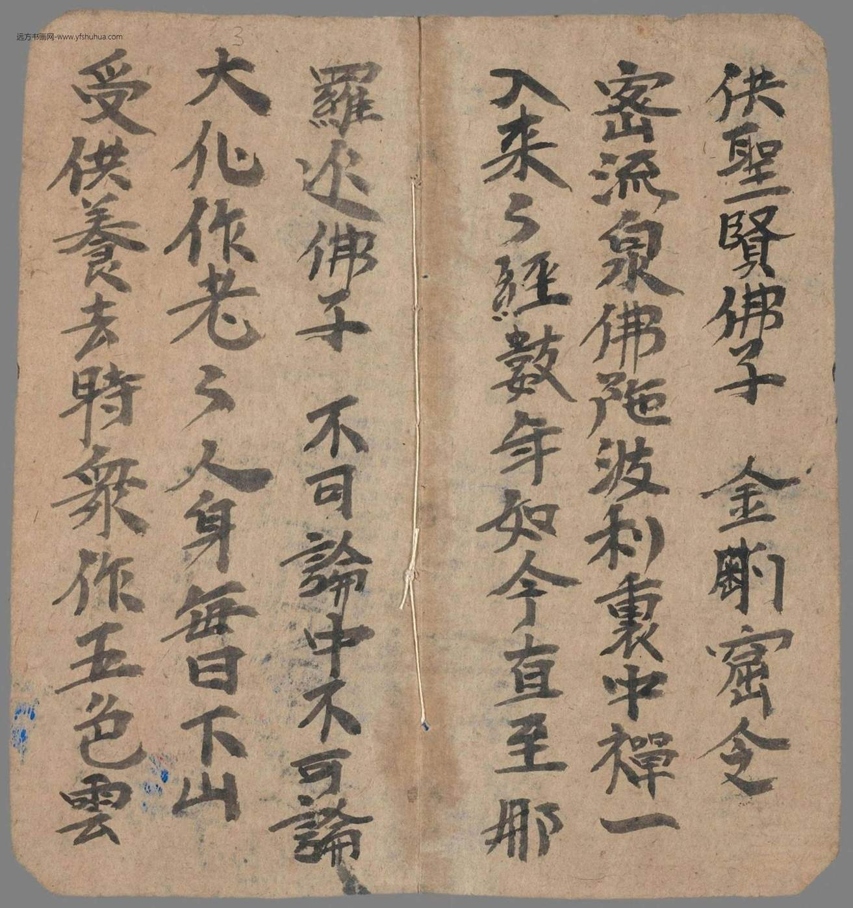 远方书画网-www.yfshuhua.com
3
供聖賢佛子 金剛窟令
密流泉佛陁波利裏中禪一
入来〻經數年如今直至那
羅延佛子 不可論中不可論
大化作老〻人身每日下山
受供養去時衆作五色雲